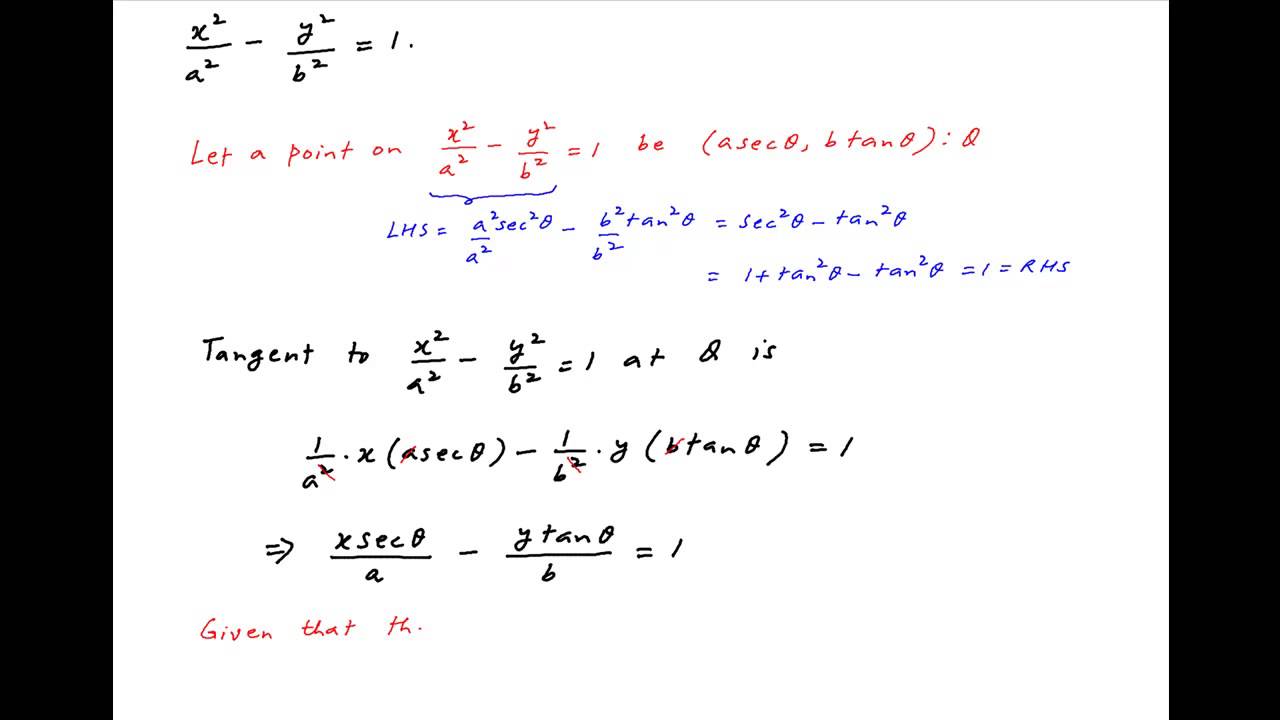 x²/a² - y²/b² = 1.
Let a point on x²/a² - y²/b² = 1 be (a secθ, b tanθ) : Q
LHS = a²sec²θ/a² - b²tan²θ/b² = sec²θ - tan²θ
= 1 + tan²θ - tan²θ = 1 = RHS
Tangent to x²/a² - y²/b² = 1 at Q is
1/a² · x (a secθ) - 1/b² · y (b tanθ) = 1
⇒ x secθ/a - y tanθ/b = 1
Given that th.